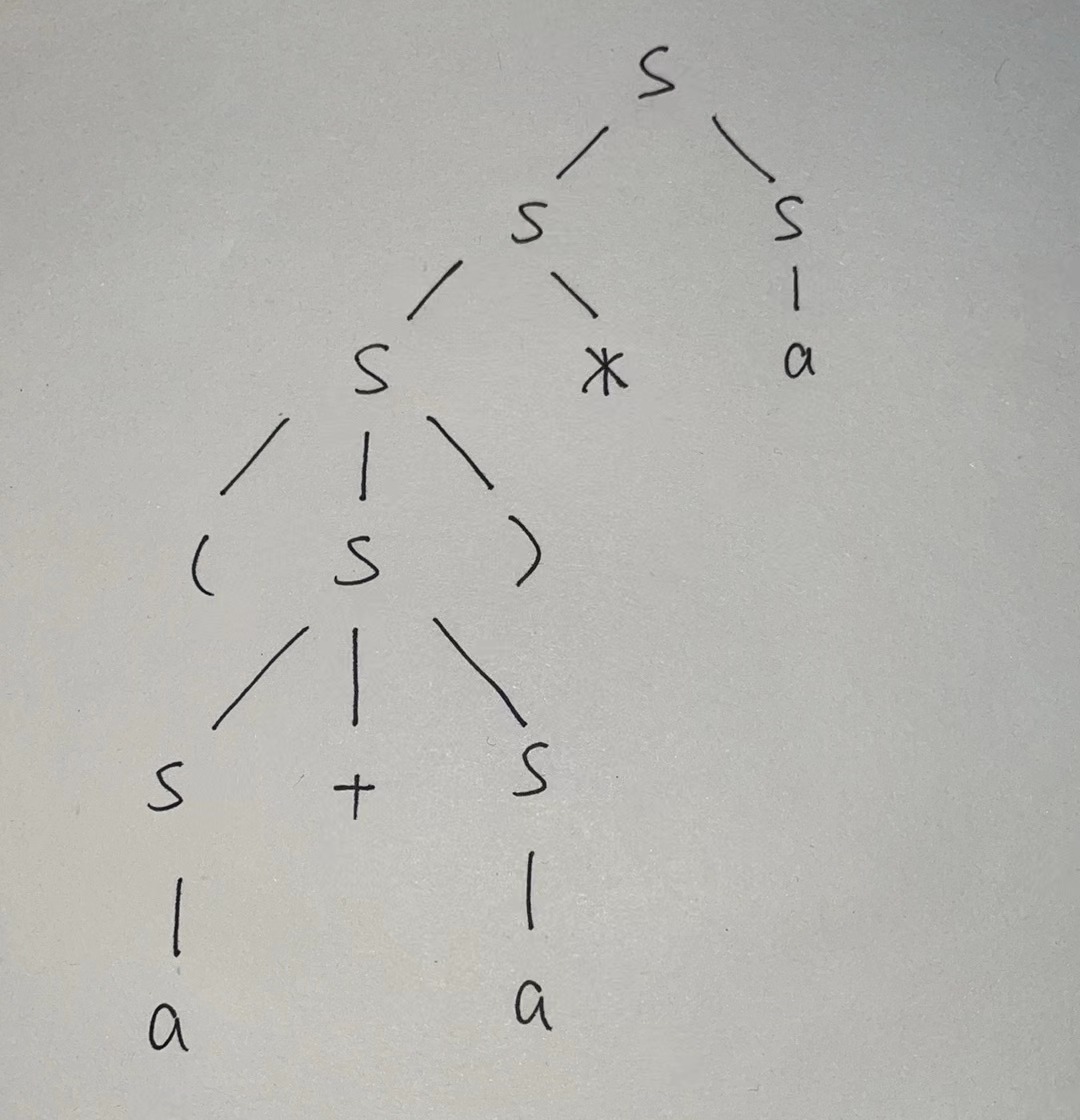 S
S S
S * a
( S )
S + S
a a